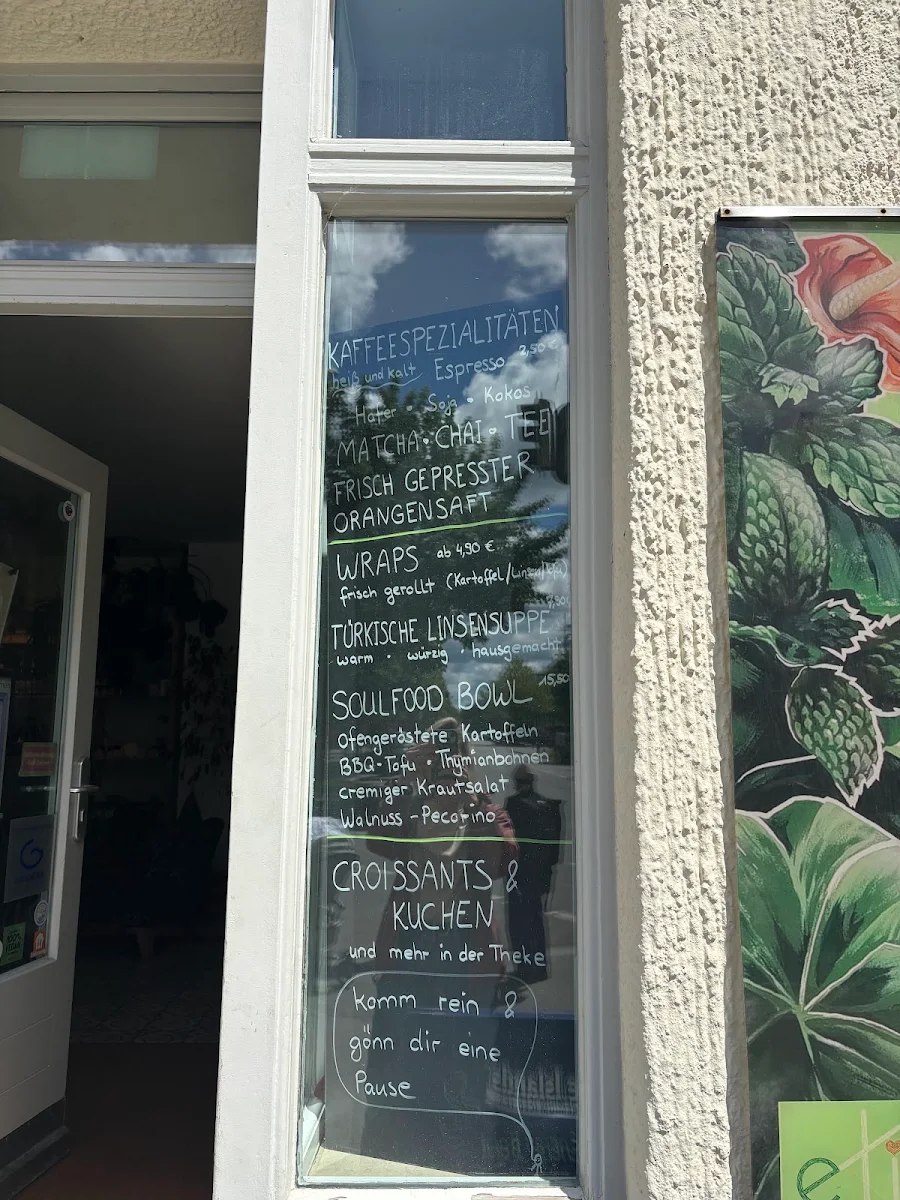 KAFFEESPEZIALITÄTEN
heiß und kalt Espresso 2,50 €
Hafer • Soja • Kokos
MATCHA • CHAI • TEE
FRISCH GEPRESSTER
ORANGENSAFT
WRAPS ab 4,90 €
frisch gerollt (Kartoffel/Linsen/
TÜRKISCHE LINSENSUPPE
warm • würzig • hausgemacht
15,50
SOULFOOD BOWL
ofengeröstete Kartoffeln
BBQ-Tofu • Thymianbohnen
cremiger Krautsalat
Walnuss - Pecorino
CROISSANTS &
KUCHEN
und mehr in der Theke
komm rein &
gönn dir eine
Pause